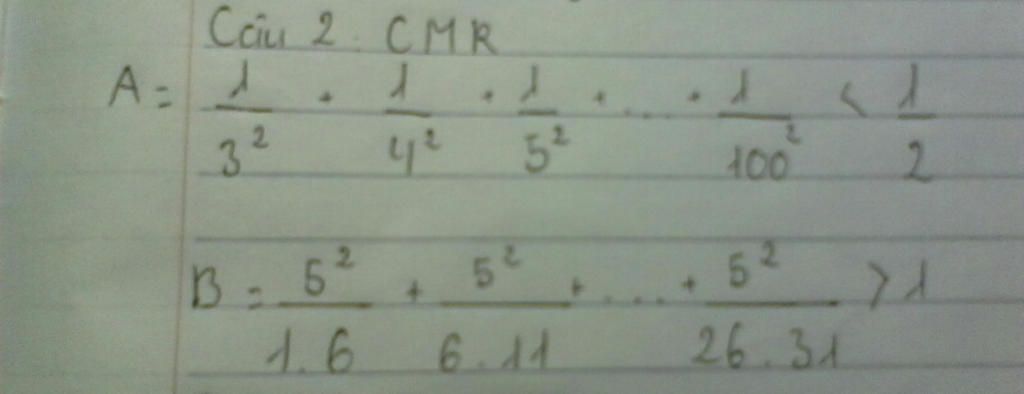 Câu 2: CMR
A = 1/3² + 1/4² + 1/5² + ... + 1/100² < 1/2
B = 5²/1.6 + 5²/6.11 + .... + 5²/26.31 > 1